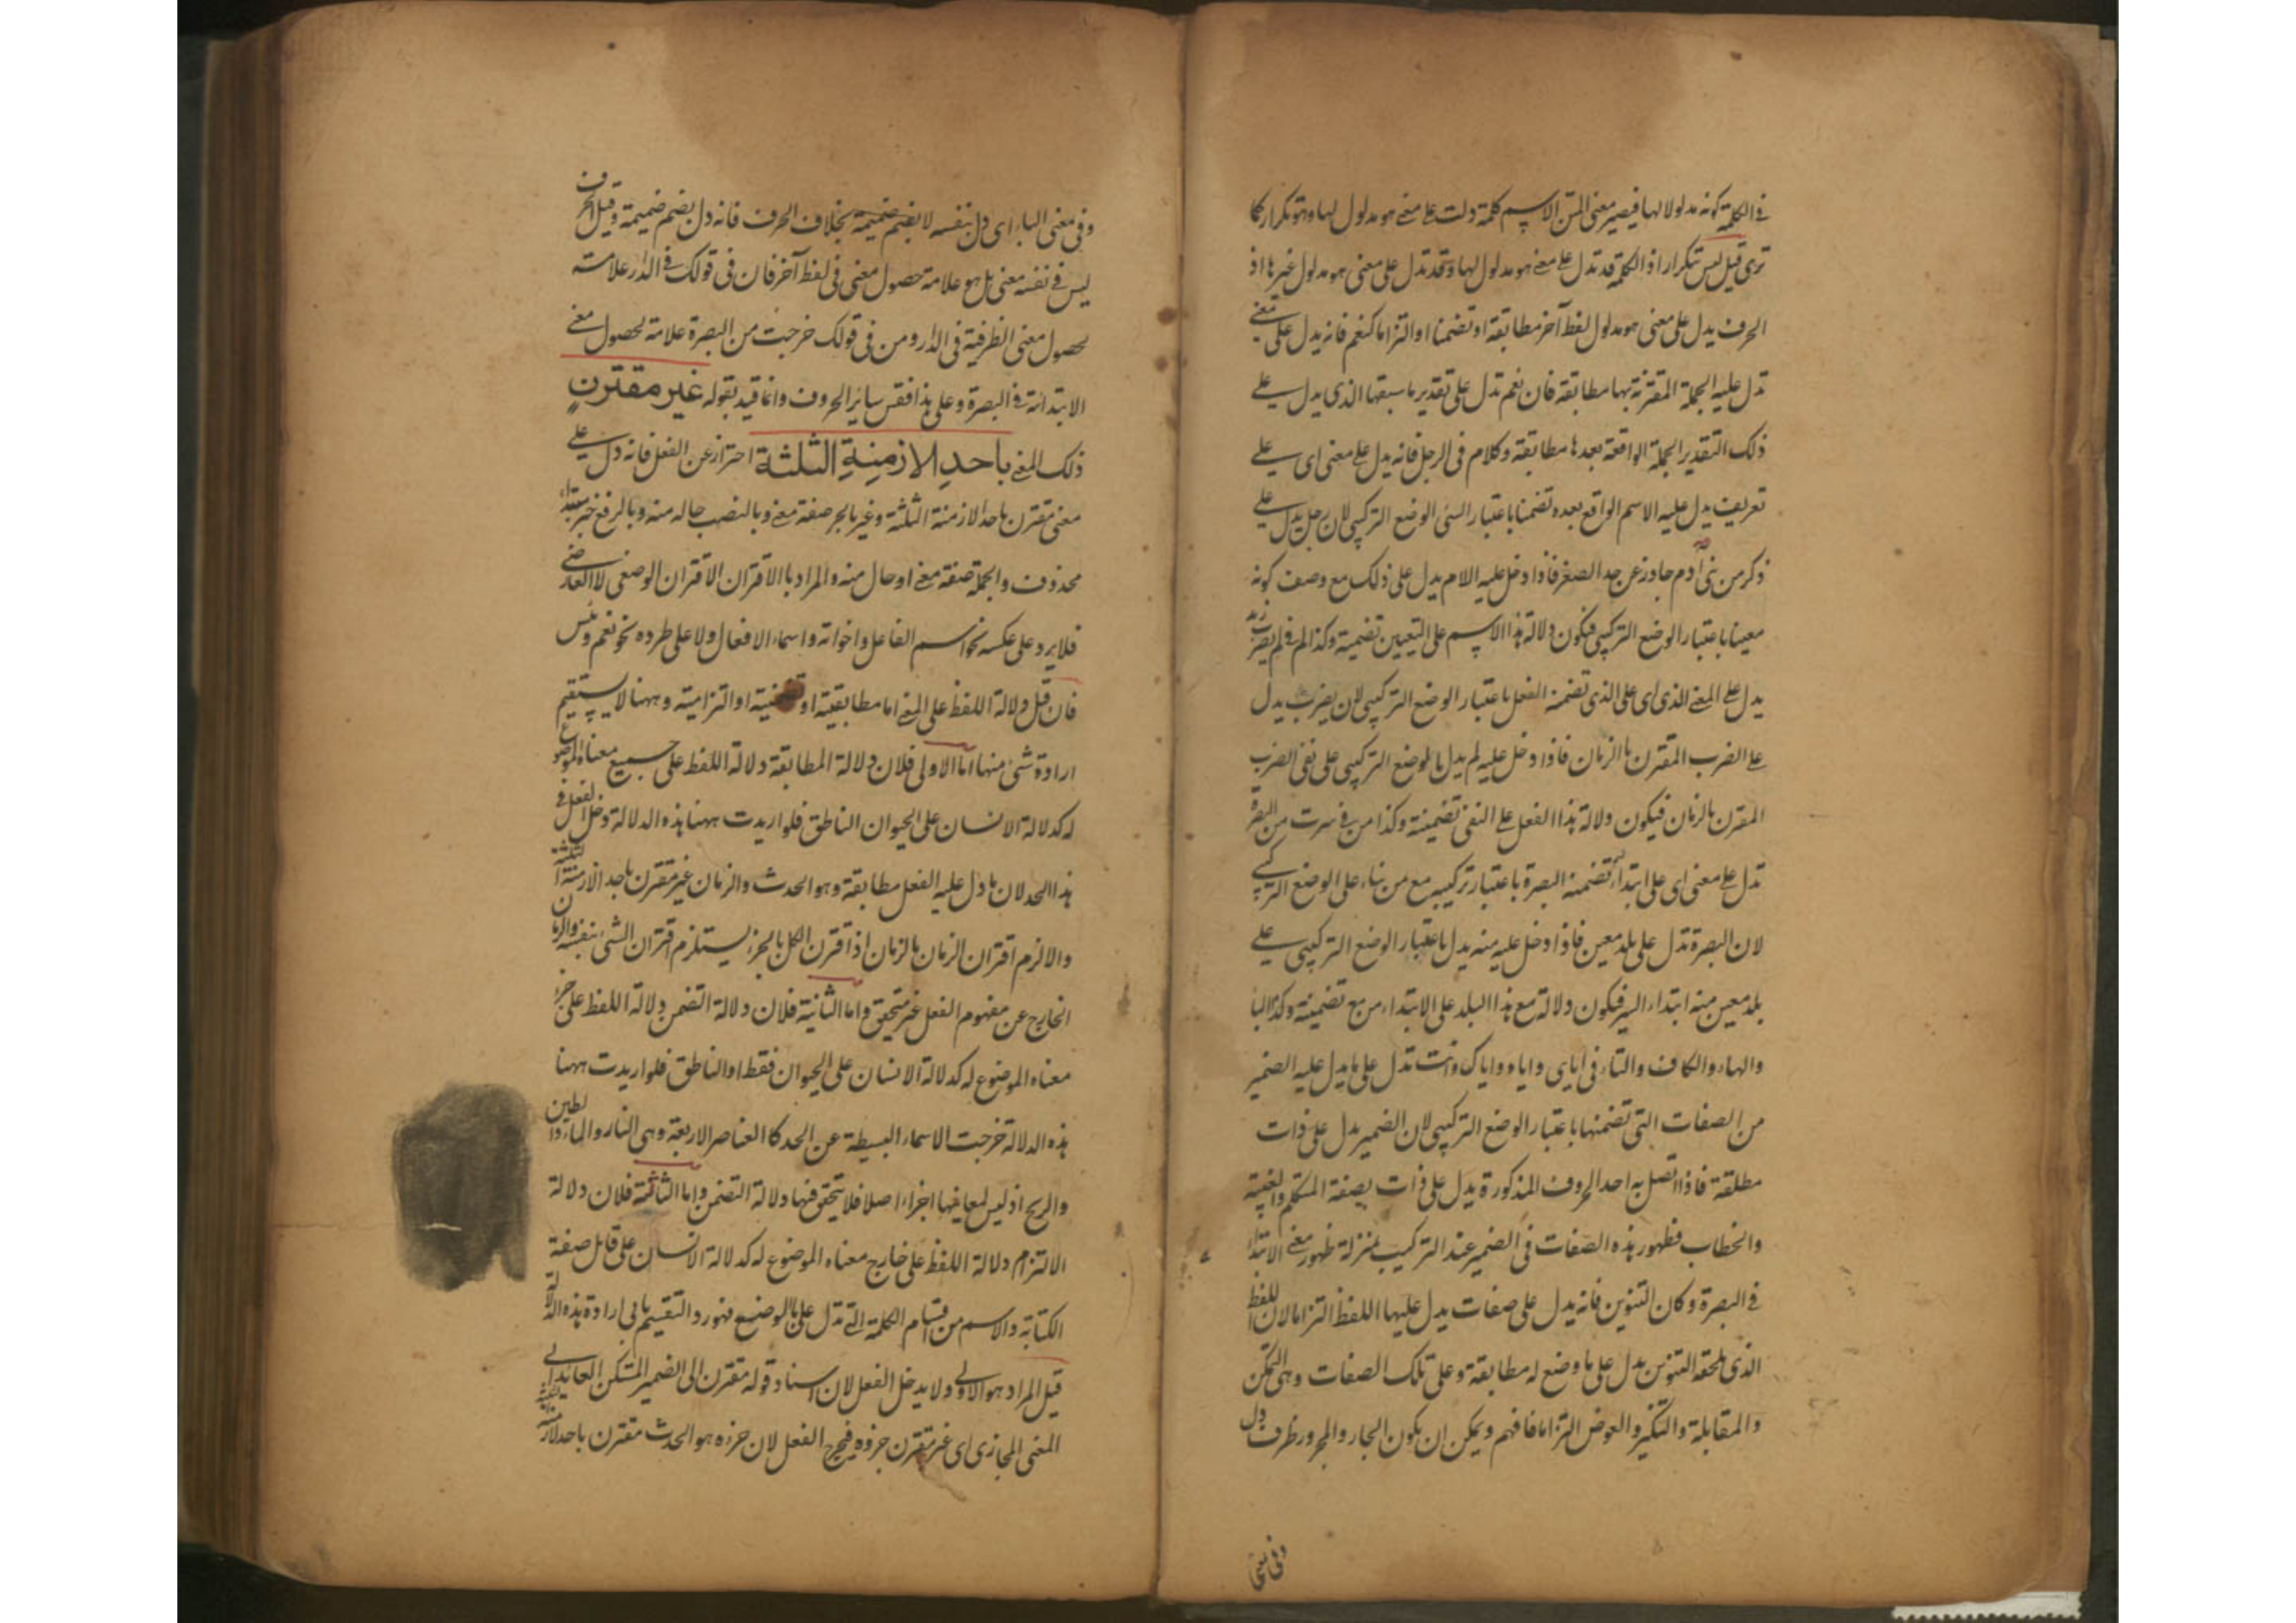 في الكلمة كونه مدلولا لها فيصير معنى المتن الاسم كلمة دلت على معنى هو مدلول لها وهو تكرار كما
ترى قيل ليس بتكرار اذ الكلمة قد تدل على معنى هو مدلول لها وقد تدل على معنى هو مدلول غيرها اذ
الحرف يدل على معنى هو مدلول لفظ آخر مطابقة او تضمنا او التزاما كنعم فانه يدل على معنى
تدل عليه الجملة المقترنة بها مطابقة فان نعم تدل على تقدير ما سبقها الذى يدل على
ذلك التقدير الجملة الواقعة بعدها مطابقة وكلام فى الرجل فانه يدل على معنى اى على
تعريف يدل عليه الاسم الواقع بعده تضمنا باعتبار الوضع التركيبى لان رجل يدل على
ذكر من بنى آدم جاوز عن حد الصغر فاذا دخل عليه اللام يدل على ذلك مع وصف كونه
معينا باعتبار الوضع التركيبى فيكون دلالة هذا الاسم على التعيين تضمينة وكذا لم فى لم يضرب زيد
يدل على المعنى الذى اى على الذى تضمنه الفعل باعتبار الوضع التركيبى لان يضرب يدل
على الضرب المقترن بالزمان فاذا دخل عليه لم يدل بالوضع التركيبى على نفى الضرب
المقترن بالزمان فيكون دلالة هذا الفعل على النفى تضمينة وكذا من فى سرت من البصرة
تدل على معنى اى على ابتداء تضمنه البصرة باعتبار تركيبه مع من بناء على الوضع التركيبى
لان البصرة تدل على بلد معين فاذا دخل عليه منه يدل باعتبار الوضع التركيبى على
بلد معين منه ابتداء السير فيكون دلالة مع هذا البلد على الابتداء من مع تضمينة وكذا اليا
والهاء والكاف والتاء فى اياى واياه واياك وانت تدل على ما يدل عليه الضمير
من الصفات التى تضمنها باعتبار الوضع التركيبى لان الضمير يدل على ذات
مطلقة فاذا اتصل به احد الحروف المذكورة يدل على ذات بصفة المتكلم والغيبة
والخطاب فظهور هذه الصفات فى الضمير عند التركيب بمنزلة ظهور معنى الابتدا
فى البصرة وكان التنوين فانه يدل على صفات يدل عليها اللفظ التزاما لان اللفظ
الذى يلحقه التنوين يدل على ما وضع له مطابقة وعلى تلك الصفات وهى التمكن
والمقابلة والتنكير والعوض التزاما فافهم ويمكن ان يكون الجار والمجرور ظرف دل
وفى معنى
وفى معنى الباء اى دل بنفسه لا بضم ضميمة بخلاف الحرف فانه دل بضم ضميمة وقيل الحرف
ليس فى نفسه معنى بل هو علامة حصول معنى فى لفظ آخر فان فى قولك فى الدار علامة
لحصول معنى الظرفية فى الدار ومن فى قولك خرجت من البصرة علامة لحصول معنى
الابتدائة فى البصرة وعلى هذا فقس سائر الحروف وانما قيد بقوله غير مقترن
ذلك المعنى باحد الازمنة الثلثة احتراز عن الفعل فانه دل على
معنى مقترن باحد الازمنة الثلثة وغير بالجر صفة معنى وبالنصب حاله منه وبالرفع خبر مبتداء
محذوف والجملة صفة معنى او حال منه والمراد بالاقتران الاقتران الوضعى لا العارضى
فلا يرد على عكسه نحو اسم الفاعل واخواته واسماء الافعال ولا على طرده نحو نعم وبئس
فان قيل دلالة اللفظ على المعنى اما مطابقية او تضمنية او التزامية وههنا لا يستقيم
ارادة شئ منها اما الاولى فلان دلالة المطابقة دلالة اللفظ على جميع معناه الموضوع
له كدلالة الانسان على الحيوان الناطق فلو اريدت ههنا هذه الدلالة دخل الفعل فى
هذا الحد لان ما دل عليه الفعل مطابقة وهو الحدث والزمان غير مقترن باحد الازمنة الثلثة
والا لزم اقتران الزمان بالزمان اذ اقترن الكل بالجزء يستلزم اقتران الشئ بنفسه والزمان
الخارج عن مفهوم الفعل غير متحقق واما الثانية فلان دلالة التضمن دلالة اللفظ على جزء
معناه الموضوع له كدلالة الانسان على الحيوان فقط او الناطق فلو اريدت ههنا
هذه الدلالة خرجت الاسماء البسيطة عن الحد كالعناصر الاربعة وهى النار والماء والطين
والريح اذ ليس لمعانيها اجزاء اصلا فلا يتحقق فيها دلالة التضمن واما الثالثة فلان دلالة
الالتزام دلالة اللفظ على خارج معناه الموضوع له كدلالة الانسان على قابل صفة
الكتابة والاسم من اقسام الكلمة التى تدل على بالوضع فهو رد التقسيم يابى ارادة هذه الدلالة
قيل المراد هو الاولى ولا يدخل الفعل لان اسناد قوله مقترن الى الضمير المستكن العائد الى
المعنى المجازى اى غير مقترن جزوه فيخرج الفعل لان جزءه هو الحدث مقترن باحد الازمنة الثلثة